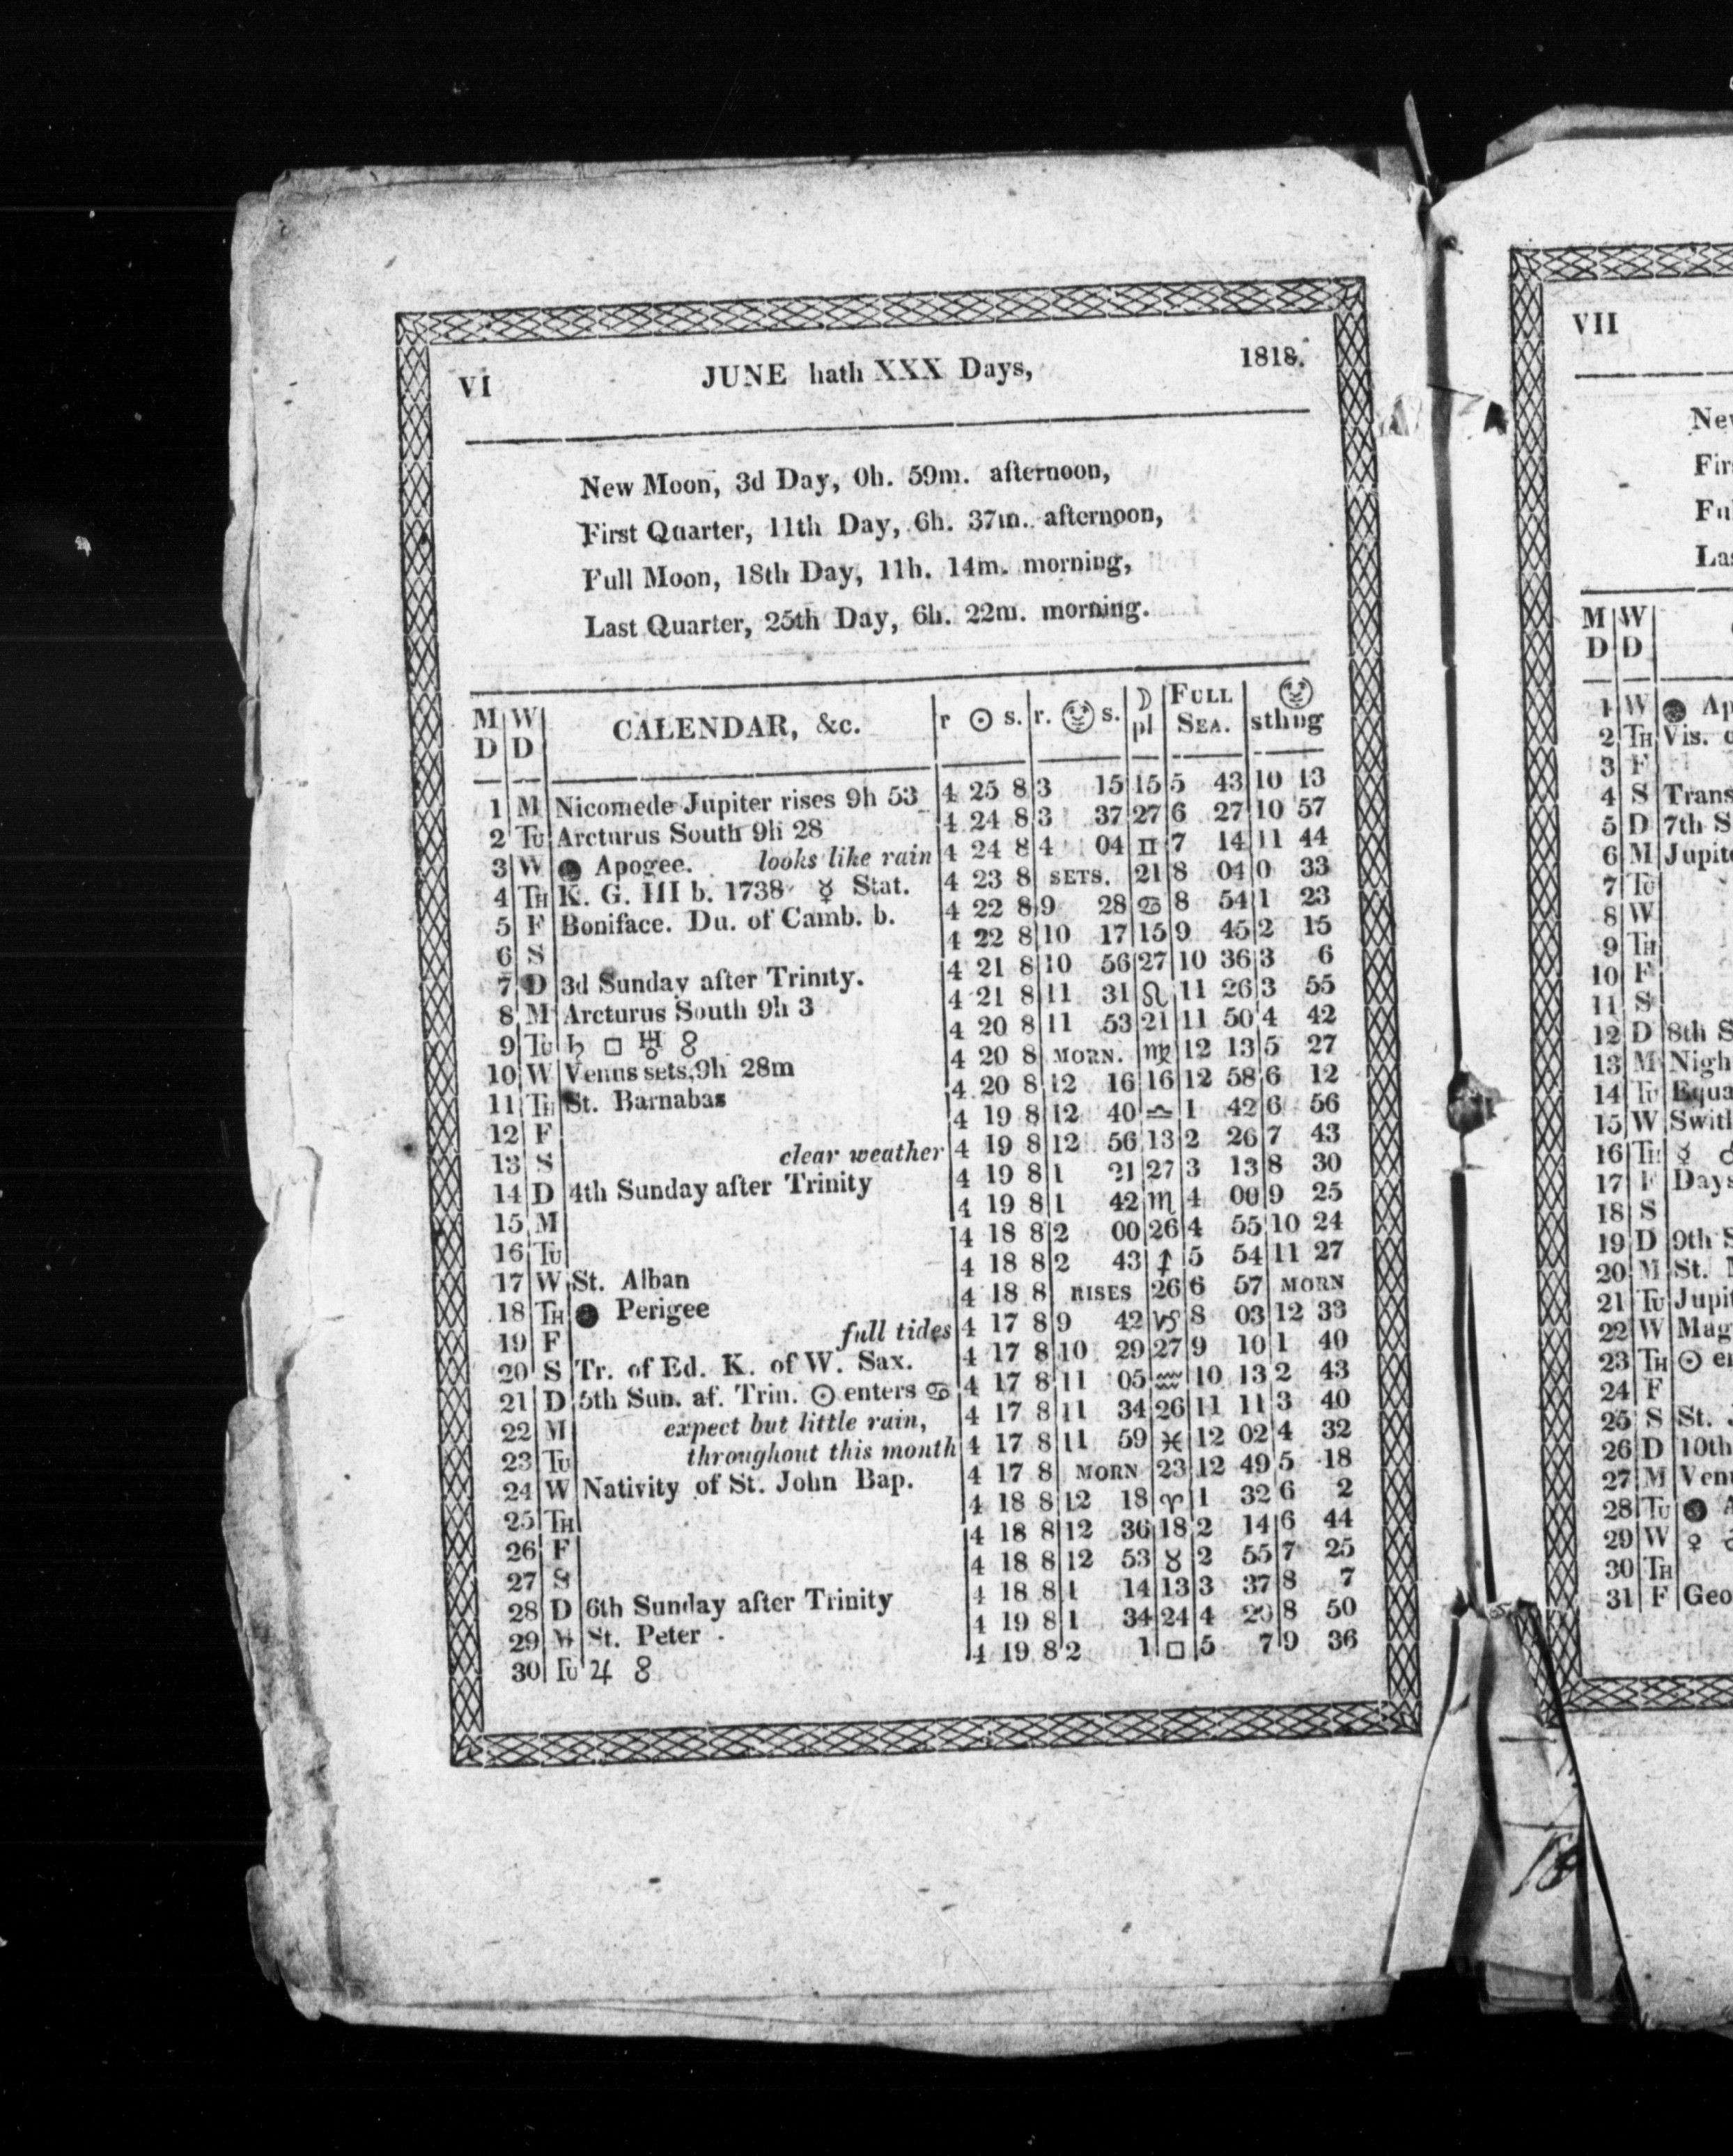 VI JUNE hath XXX Days, 1818.
New Moon, 3d Day, 0h. 59m. afternoon,
First Quarter, 11th Day, 6h. 37m. afternoon,
Full Moon, 18th Day, 11h. 14m. morning,
Last Quarter, 25th Day, 6h. 22m. morning.
M D W D CALENDAR, &c. r ☉ s. r. s. ☽ pl FULL SEA. sthng
1 M Nicomede Jupiter rises 9h 53 4 25 8 3 15 15 5 43 10 13
2 TU Arcturus South 9h 28 4 24 8 3 37 27 6 27 10 57
3 W ● Apogee. looks like rain 4 24 8 4 04 ♊ 7 14 11 44
4 TH K. G. III b. 1738 ☿ Stat. 4 23 8 SETS. 21 8 04 0 33
5 F Boniface. Du. of Camb. b. 4 22 8 9 28 ♋ 8 54 1 23
6 S 4 22 8 10 17 15 9 45 2 15
7 D 3d Sunday after Trinity. 4 21 8 10 56 27 10 36 3 6
8 M Arcturus South 9h 3 4 21 8 11 31 ♌ 11 26 3 55
9 TU ♄ □ ♅ 8 4 20 8 11 53 21 11 50 4 42
10 W Venus sets 9h 28m 4 20 8 MORN. ♍ 12 13 5 27
11 TH St. Barnabas 4 20 8 12 16 16 12 58 6 12
12 F 4 19 8 12 40 ♎ 1 42 6 56
13 S clear weather 4 19 8 12 56 13 2 26 7 43
14 D 4th Sunday after Trinity 4 19 8 1 21 27 3 13 8 30
15 M 4 19 8 1 42 ♏ 4 00 9 25
16 TU 4 18 8 2 00 26 4 55 10 24
17 W St. Alban 4 18 8 2 43 ♐ 5 54 11 27
18 TH ● Perigee 4 18 8 RISES 26 6 57 MORN
19 F full tides 4 17 8 9 42 ♑ 8 03 12 33
20 S Tr. of Ed. K. of W. Sax. 4 17 8 10 29 27 9 10 1 40
21 D 5th Sun. af. Trin. ☉ enters ♋ 4 17 8 11 05 ♒ 10 13 2 43
22 M expect but little rain, 4 17 8 11 34 26 11 11 3 40
23 TU throughout this month 4 17 8 11 59 ♓ 12 02 4 32
24 W Nativity of St. John Bap. 4 17 8 MORN 23 12 49 5 18
25 TH 4 18 8 12 18 ♈ 1 32 6 2
26 F 4 18 8 12 36 18 2 14 6 44
27 S 4 18 8 12 53 ♉ 2 55 7 25
28 D 6th Sunday after Trinity 4 18 8 1 14 13 3 37 8 7
29 M St. Peter 4 19 8 1 34 24 4 20 8 50
30 TU ♃ 8 4 19 8 2 1 □ 5 7 9 36
VII
M D W D
1 W ●
2 TH Vis.
3 F
4 S
5 D 7th
6 M
7 TU
8 W
9 TH
10 F
11 S
12 D 8th
13 M
14 TU
15 W
16 TH ☿
17 F Days
18 S
19 D 9th
20 M St.
21 TU
22 W
23 TH ☉
24 F
25 S St.
26 D 10th
27 M
28 TU ●
29 W ♀
30 TH
31 F